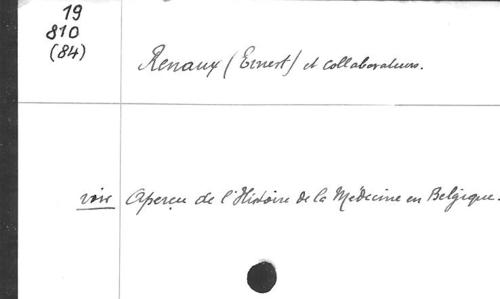 19
810
(84)
Renaux (Ernest) et collaborateurs.
voir Aperçu de l'Histoire de la Médecine en Belgique.